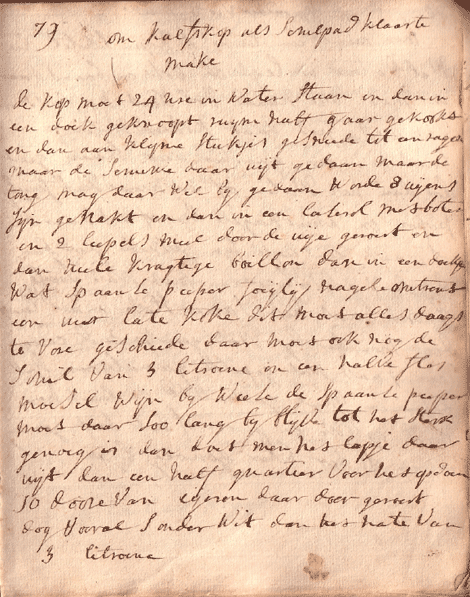 79 om kalfskop als Schilpad klaarte
make
de kop moet 24 ure in water staan en dan in
een doek geknoopt ruym half gaar gekookt
en dan aan kleyne stukjes gesneede
maar de daar uijt gedaan maar de
tong mag daar wel by gedaan worde 8 uijens
fijn gehakt en dan in een boter
in 2 lepels meel door de uije geroert en
dan heele kragtige boillon dan in een doekje
wat spaanse peeper foelij nagele
een uur late koke dit moet alles daags
te vore geschiede daar moet ook nog de
schil van 3 citroene en een halve fles
moesel wijn by weese de spaanse peeper
moet daar soo lang by blijve tot het sterk
genoeg is dan doet men het lapje daar
uijt dan een half quartier voor het opdoen
10 doore van eyeren daar door geroert
dog vooral sonder wit dan het nate van
3 citroene